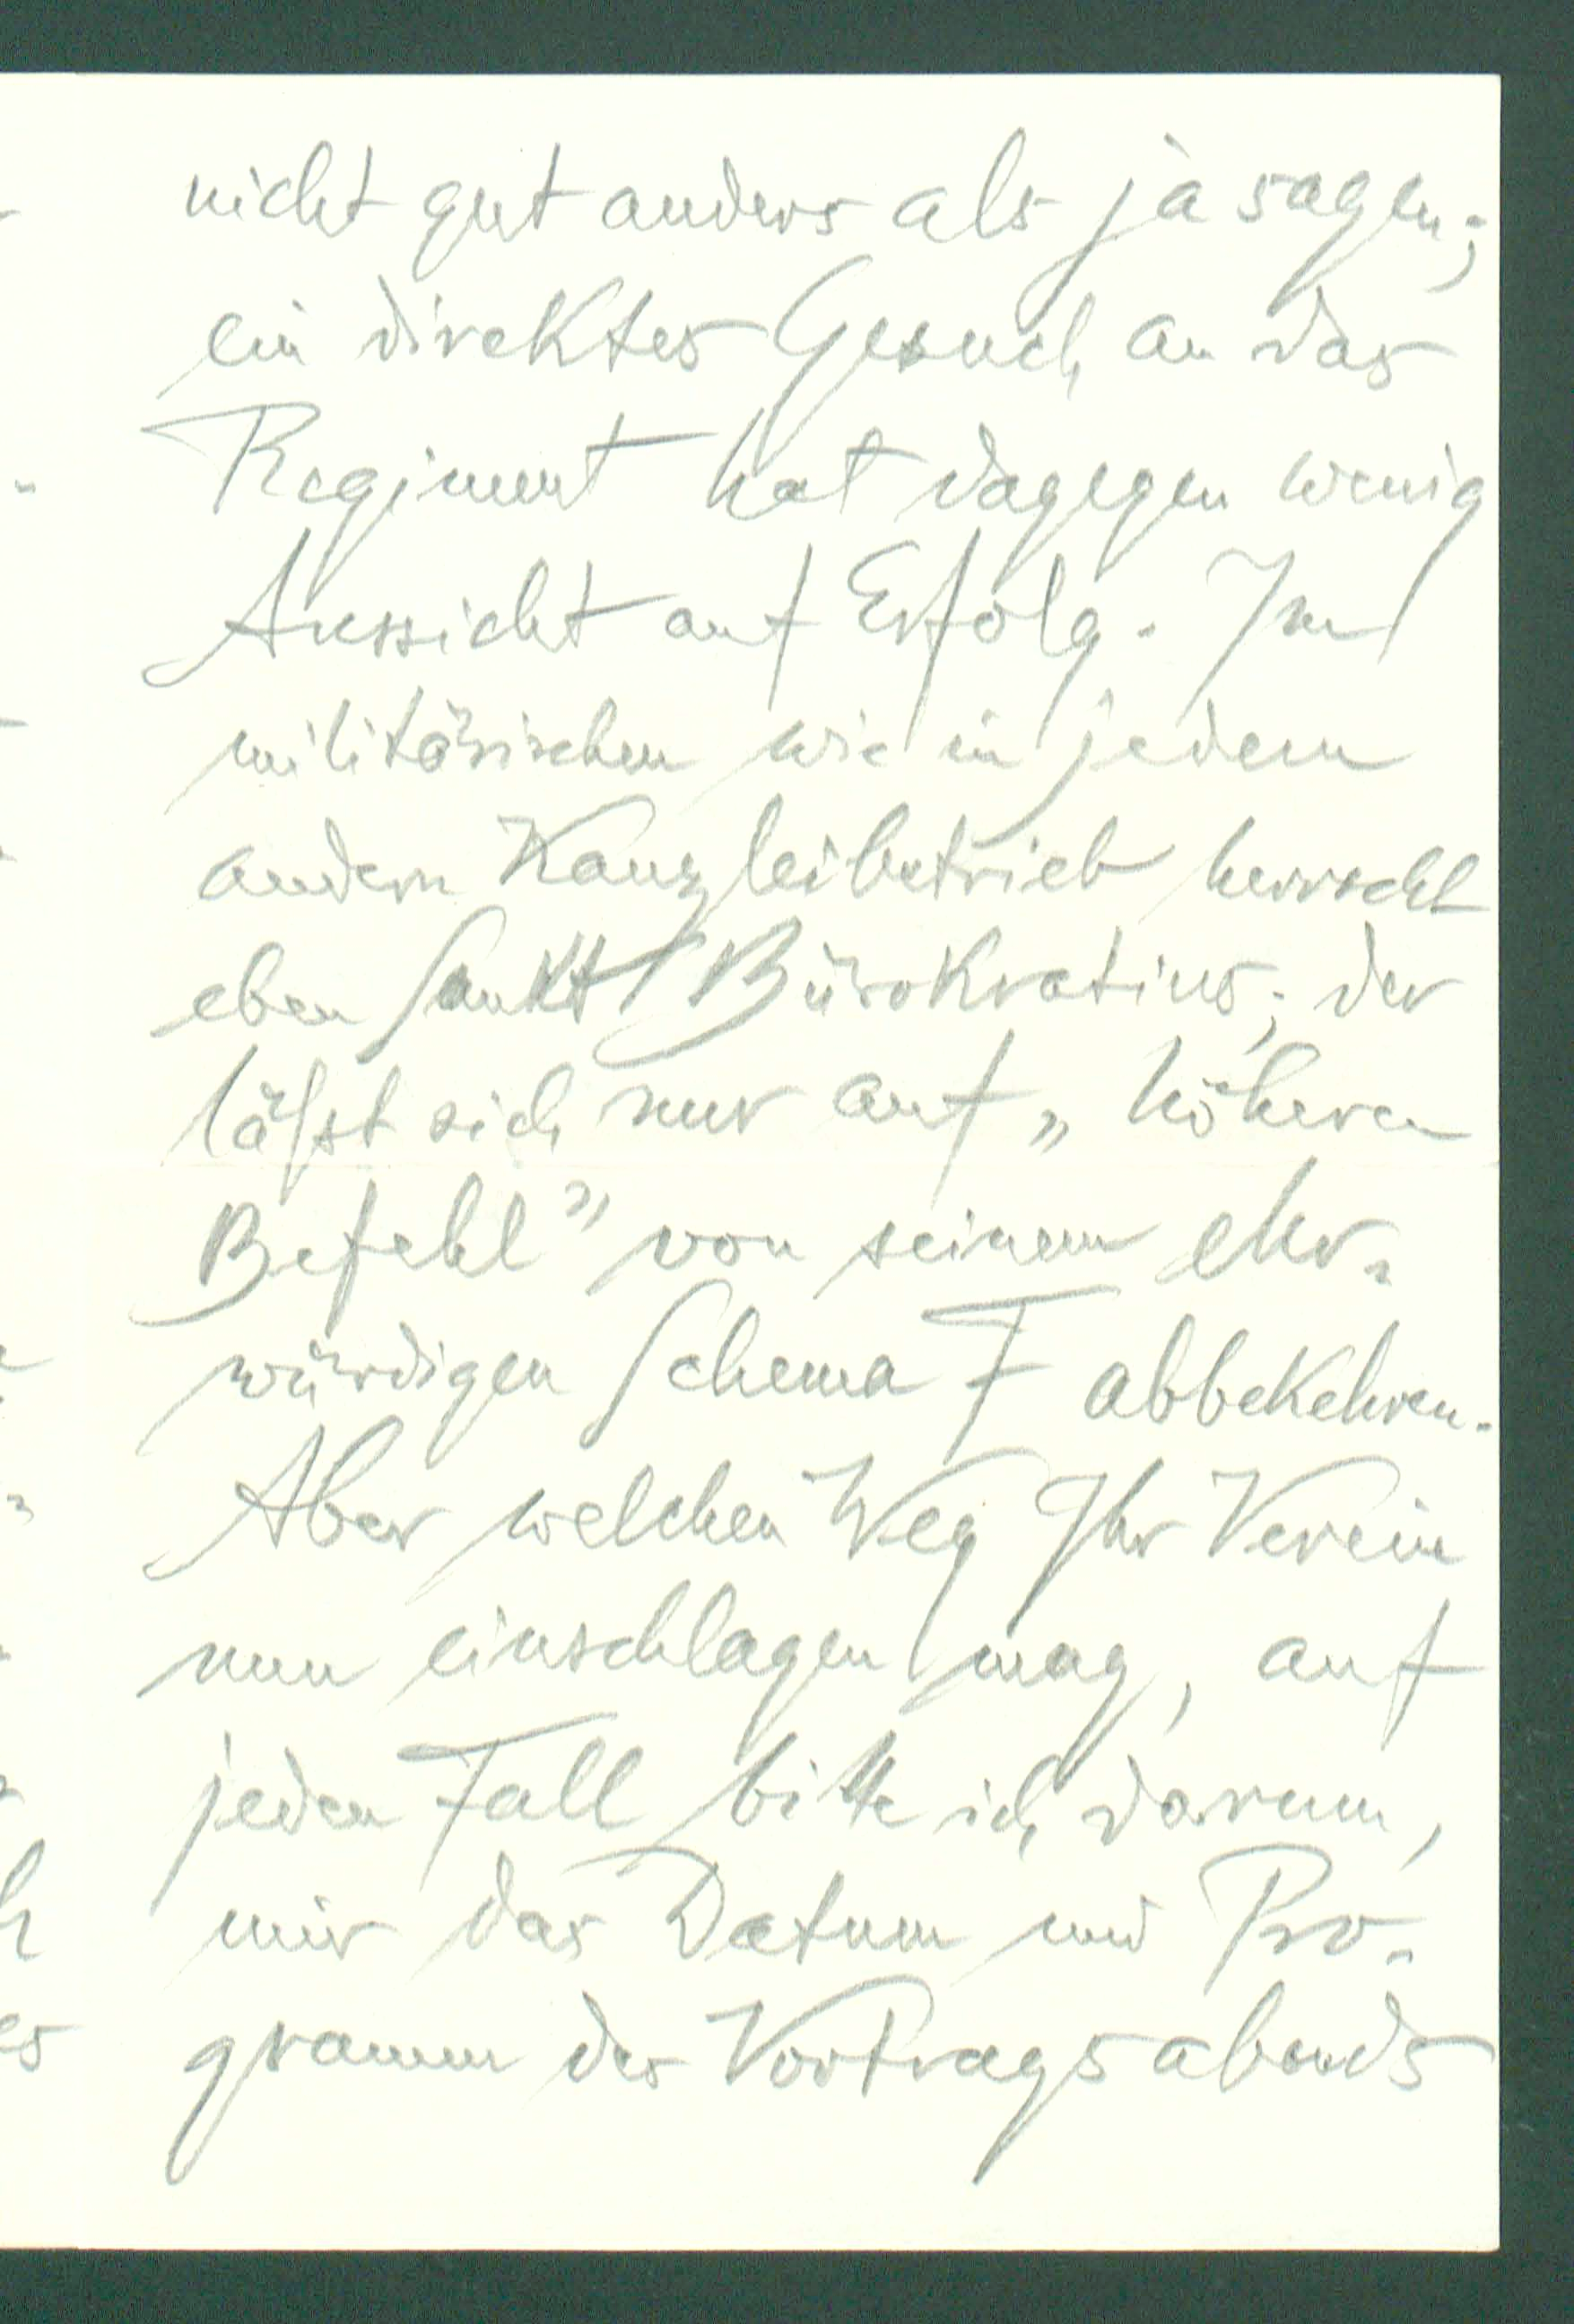 nicht gut anders als ja sagen;
ein direktes Gesuch an das
Regiment hat dagegen wenig
Aussicht auf Erfolg. Im
militärischen wie in jedem
andern Kanzleibetrieb herrscht
eben Sankt Bürokratius; der
läßst sich nur auf „höheren
Befehl” von seinem ehr-
würdigen Schema F abbekehren.
Aber welchen Weg Ihr Verein
nun einschlagen mag, auf
jeden Fall bitte ich darum,
mir das Datum und Pro-
gramm des Vortragsabends